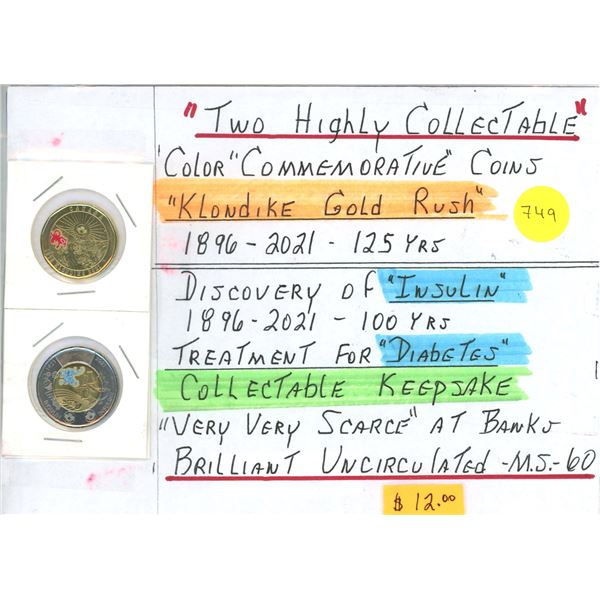 "Two Highly Collectable"
Color "Commemorative" Coins
"Klondike Gold Rush"
749
1896-2021-125 YRS
Discovery of "Insulin"
1896-2021-100 YRS
Treatment for "Diabetes"
Collectable Keepsake
"Very Very Scarce" at Banks
Brilliant Uncirculated -M.S.-60
$12.00
CANADA